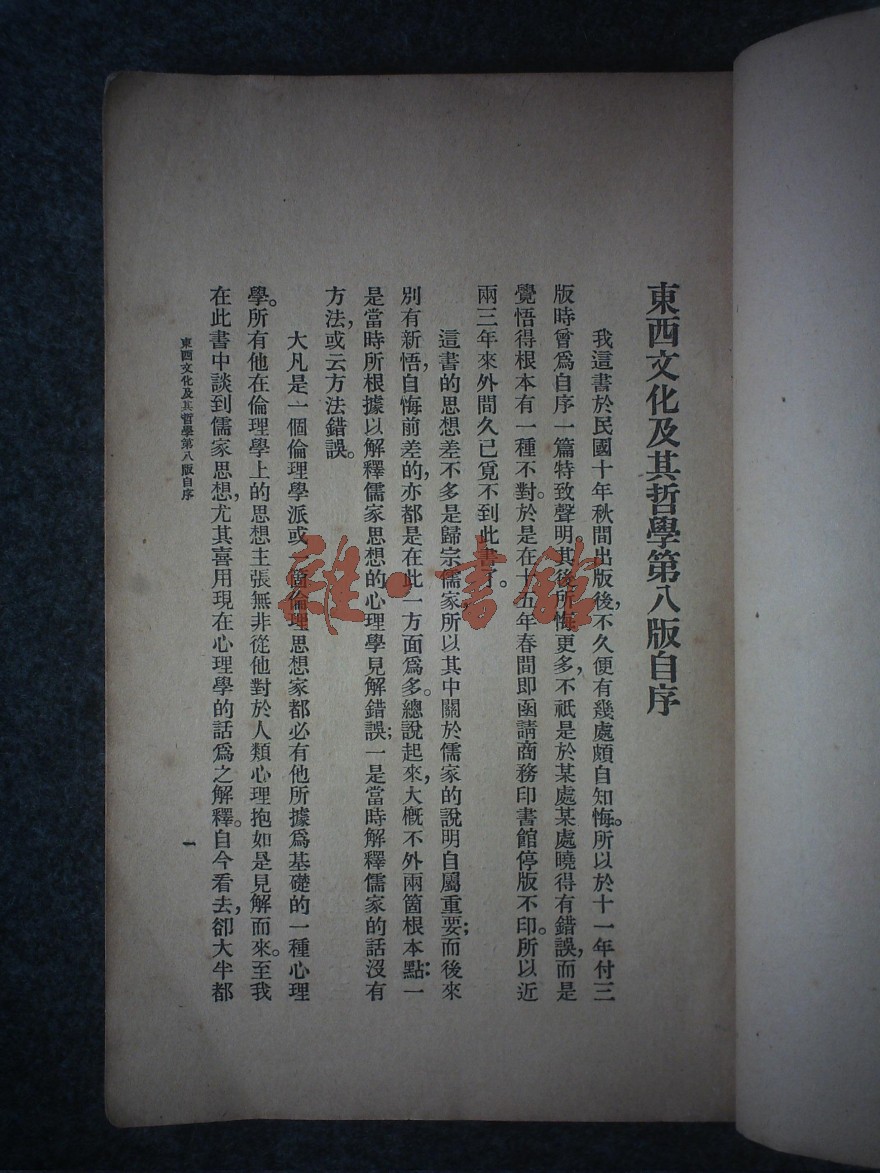 東西文化及其哲學第八版自序
我這書於民國十年秋間出版後,不久便有幾處頗自知悔。所以於十一年付三
版時曾爲自序一篇特致聲明其後所悔更多,不祇是於某處某處曉得有錯誤,而是
覺悟得根本有一種不對。於是在十五年春間即函請商務印書館停版不印。所以近
兩三年來外間久已覓不到此書了。
這書的思想差不多是歸宗儒家,所以其中關於儒家的說明自屬重要;而後來
別有新悟,自悔前差的,亦都是在此一方面爲多。總說起來,大槪不外兩箇根本點:一
是當時所根據以解釋儒家思想的心理學見解錯誤;一是當時解釋儒家的話沒有
方法,或云方法錯誤。
大凡是一個倫理學派或一箇倫理思想家都必有他所據爲基礎的一種心理
學。所有他在倫理學上的思想主張無非從他對於人類心理抱如是見解而來。至我
在此書中談到儒家思想,尤其喜用現在心理學的話爲之解釋。自今看去,卻大半都
東西文化及其哲學第八版自序
一
雜·書館